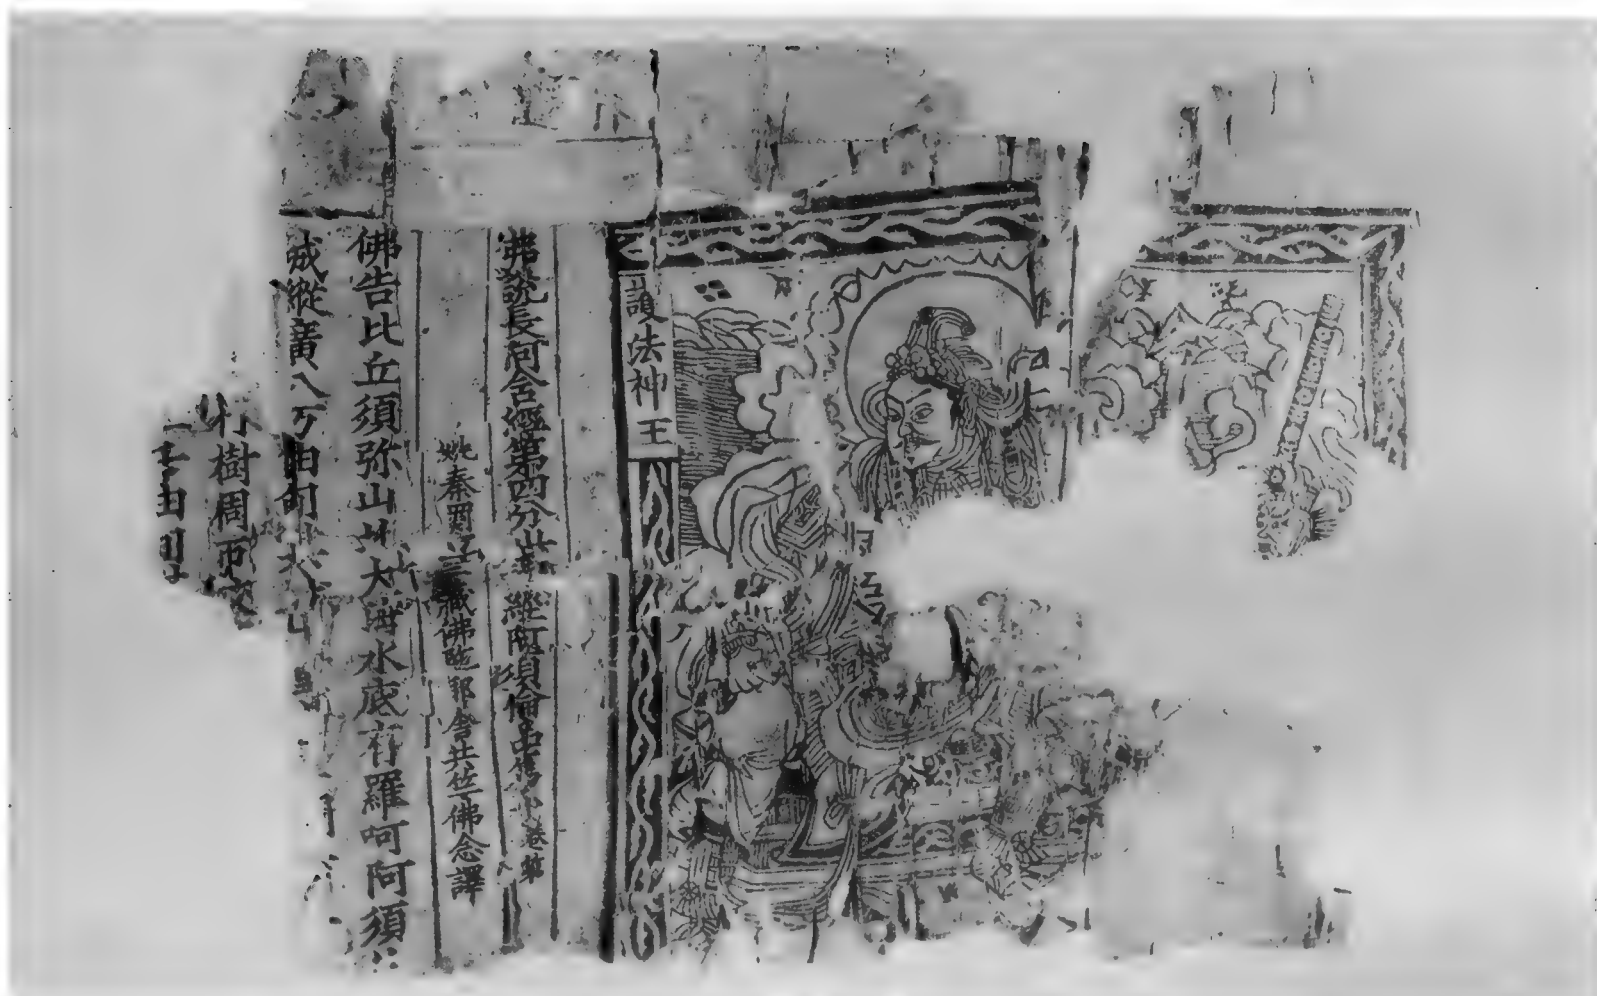 護法神王
佛說長阿含經第四分世 經阿須倫品 卷第
姚秦罽 三藏佛陀耶舍共竺佛念譯
佛告比丘須弥山北大海水底有羅呵阿須
城縱廣八万由旬
樹周匝
由旬